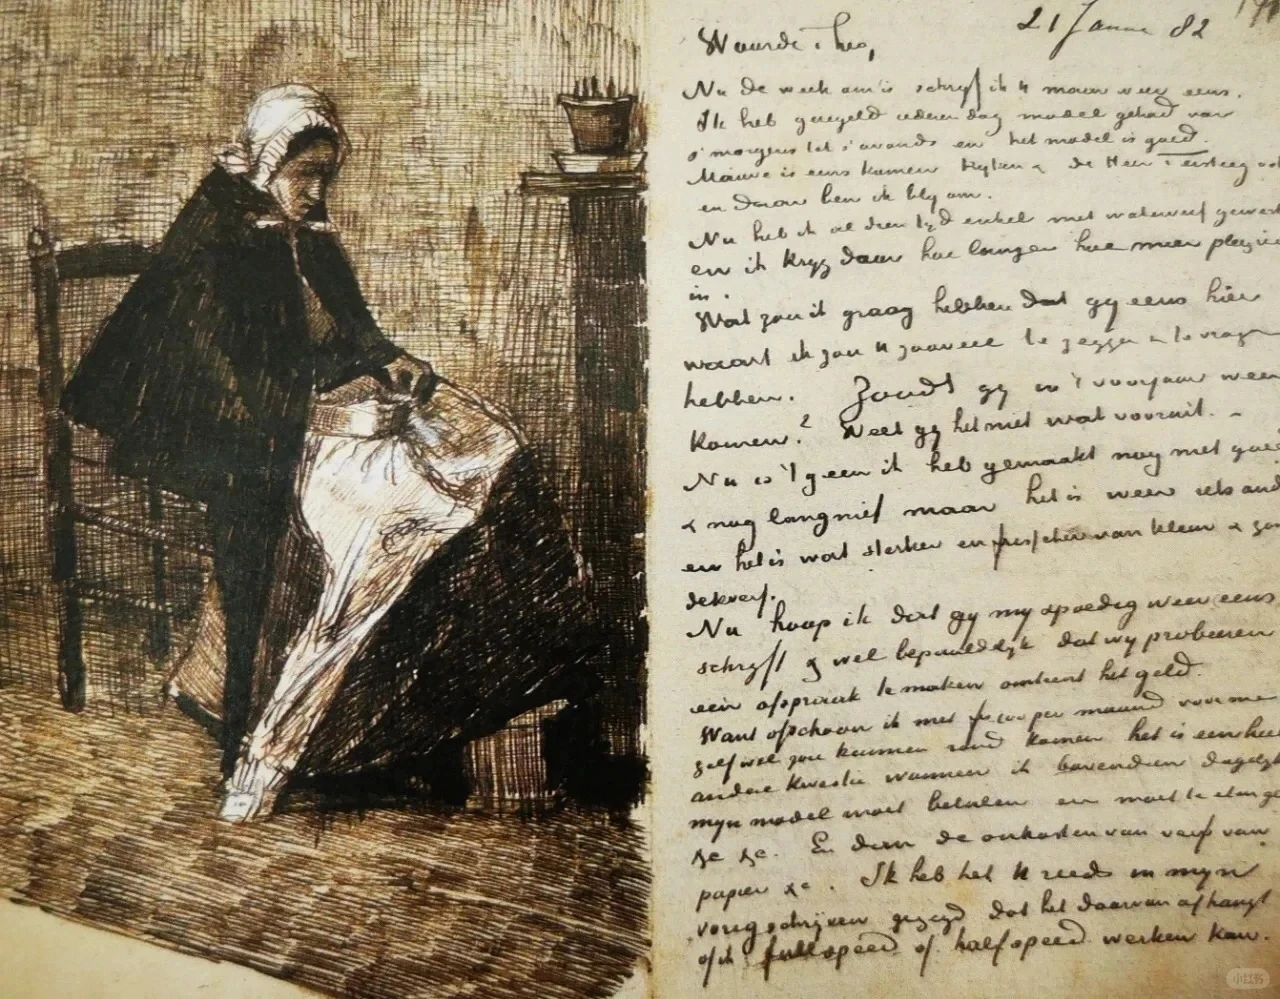 21 Janu 82
Waarde Theo,
Nu de week om is schryf ik U maar weer eens.
Ik heb geregeld iederen dag model gehad van
s'morgens tot s'avonds en het model is goed.
Mauve is eens komen kyken & de Heer Tersteeg ook
en daar ben ik bly om.
Nu heb ik al dien tyd enkel met waterverf gewerkt
en ik kryg daar hoe langer hoe meer plezier
in.
Wat zou ik graag hebben dat gy eens hier
waart ik zou U zooveel te zeggen & te vragen
hebben. Zoudt gy in 't voorjaar weer
komen? Weet gy het niet wat vooruit. –
Nu is 't geen ik heb gemaakt nog niet goed
& nog lang niet maar het is weer iets anders
en het is wat sterker en frisscher van kleur &
dekverf.
Nu hoop ik dat gy my spoedig weer eens
schryft & wel bepaaldelyk dat wy probeeren
een afspraak te maken omtrent het geld.
Want ofschoon ik met per maand voor me
zelf wel zou kunnen rond komen het is een heel
andere kwestie wanneer ik bovendien dagelyks
myn model moet betalen en moet te eten geven
&c &c. En dan de onkosten van verf van
papier &c. Ik heb het U reeds in myn
vorig schrijven gezegd dat het daarvan afhangt
of ik full speed of half speed werken kan.
小红书